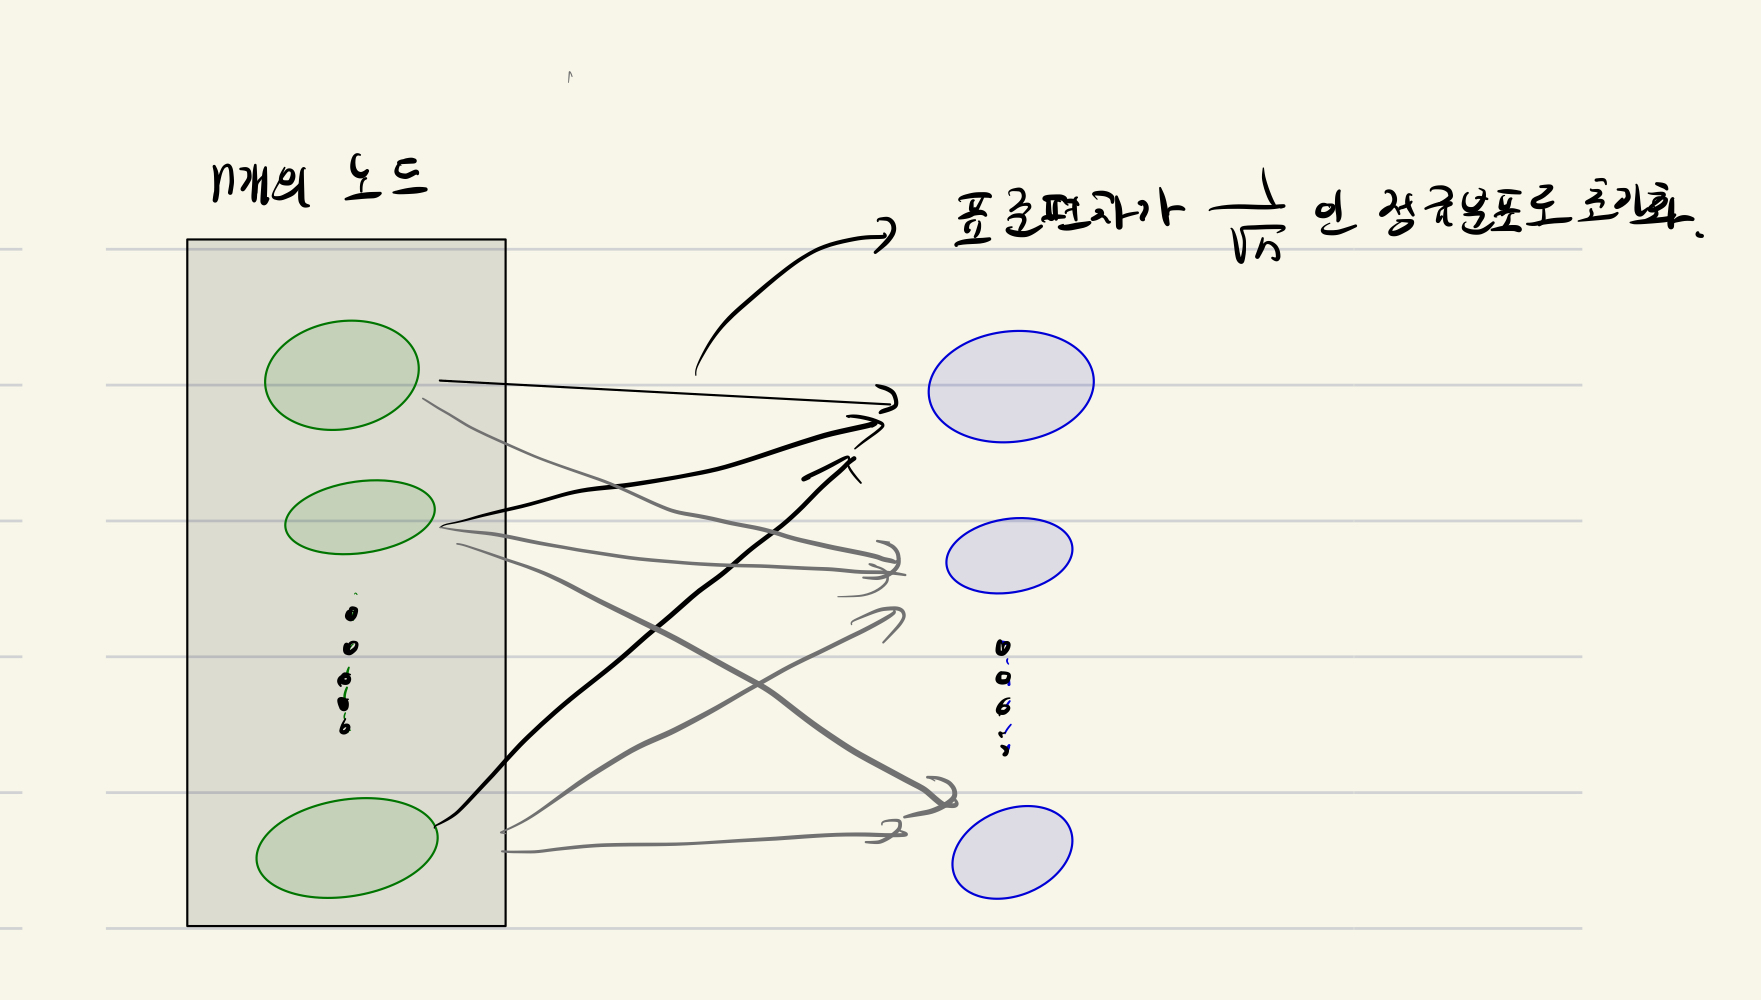 n개의 노드
표준편차가 1/√n 인 정규분포로 초기화.